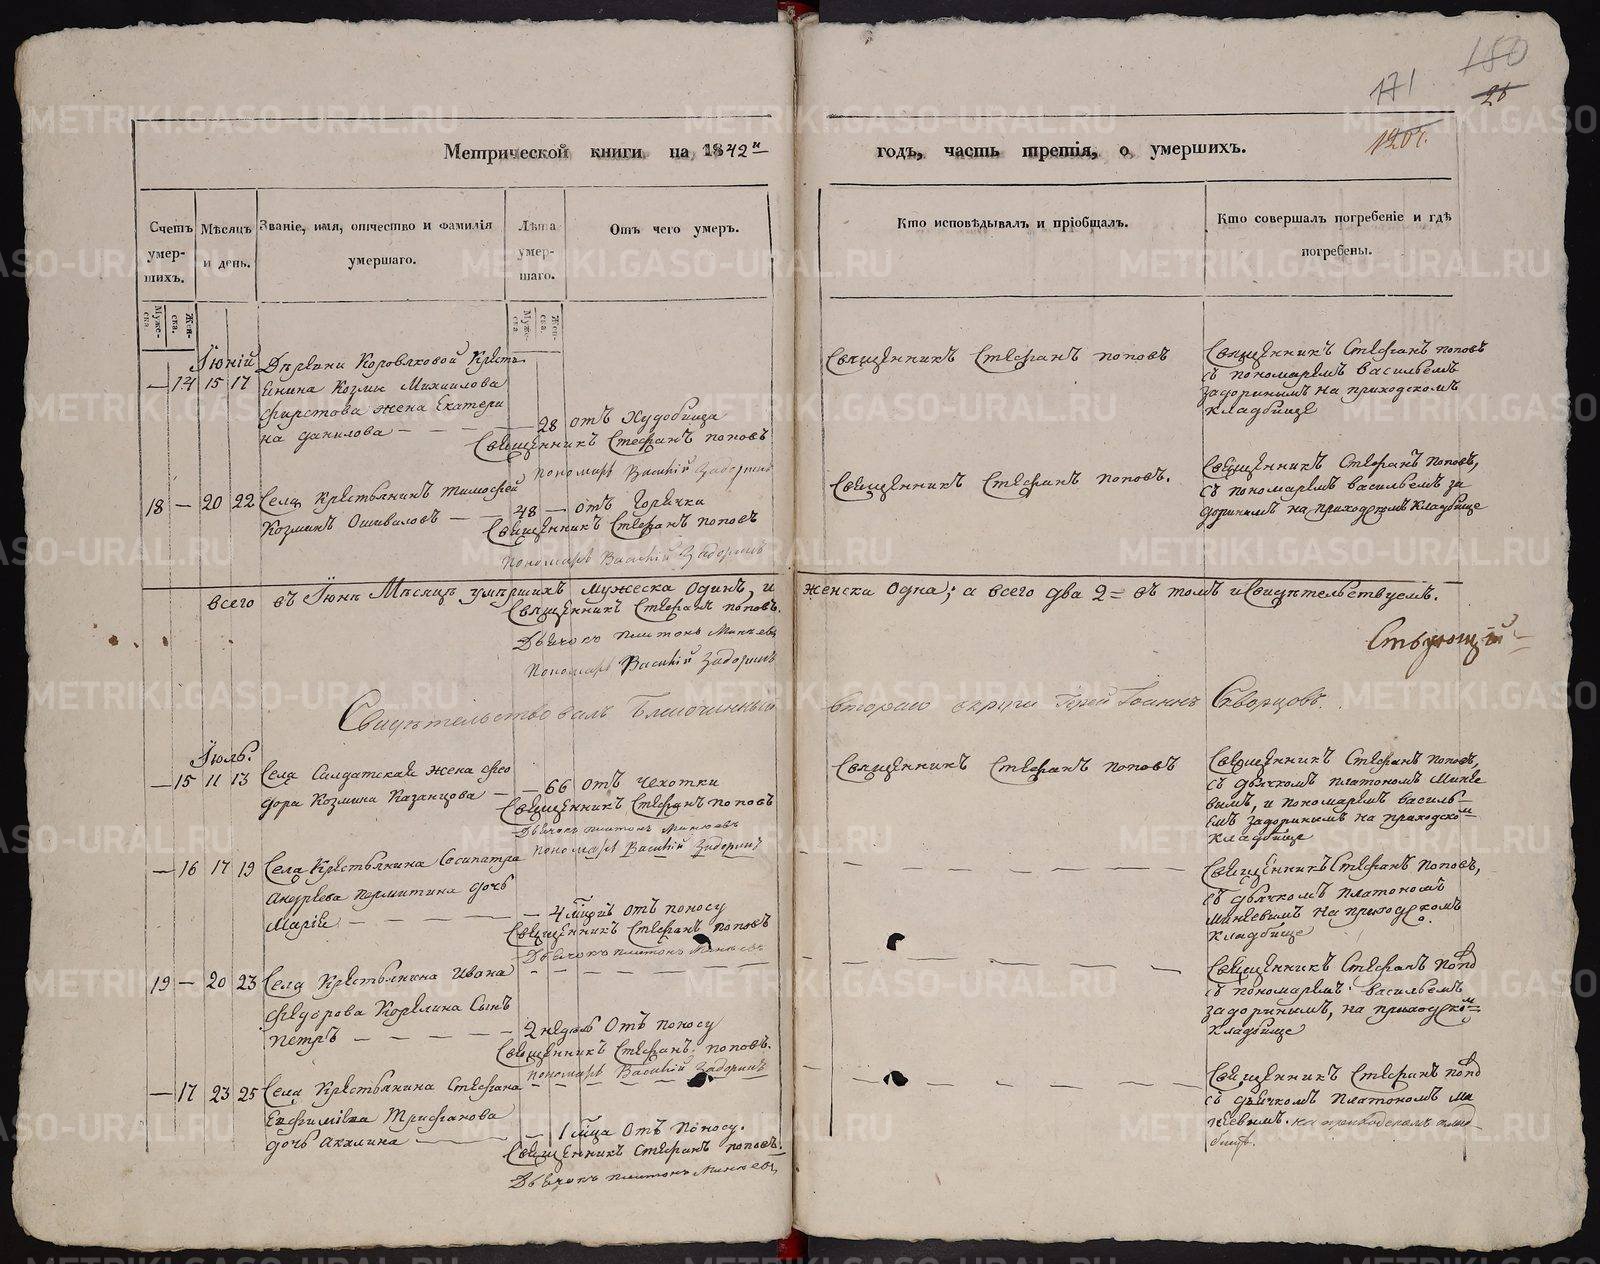 180
171
26
1201.
Метрической книги на 1842й
годъ, часть третія, о умершихъ.
Счетъ умер-
шихъ.
Мѣсяцъ
и день.
Званіе, имя, отчество и фамилія
умершаго.
Лѣта
умер-
шаго.
Отъ чего умеръ.
Кто исповѣдывалъ и пріобщалъ.
Кто совершалъ погребеніе и гдѣ
погребены.
Муже-
ска.
Жен-
ска.
Муже-
ска.
Жен-
ска.
Іюній
— 14 15 17
Деревни Коровяковой Кресть-
янина Козмы Михаилова
Фирстова жена Екатери
на Данилова — — — 28 отъ Худобища
Священникъ Стефанъ Поповъ
Пономарь Василій Задоринъ
Священникъ Стефанъ Поповъ
Священникъ Стефанъ Поповъ
съ пономаремъ Васильемъ
Задоринымъ на приходскомъ
кладбище
18 — 20 22
Села Крестьянинъ Тимофей
Козминъ Ошиваловъ — — 48 — отъ Горячки
Священникъ Стефанъ Поповъ
Пономарь Василій Задоринъ
Священникъ Стефанъ Поповъ.
Священникъ Стефанъ Поповъ,
съ пономаремъ Васильемъ За
доринымъ на приходскомъ кладбище
всего въ Іюнѣ Мѣсяцѣ умершихъ мужеска Одинъ, и женска Одна; а всего два 2= въ томъ и Свидѣтельствуемъ.
Священникъ Стефанъ Поповъ.
Дьячокъ Платонъ Минѣевъ
Пономарь Василій Задоринъ
Свидѣтельствовалъ Благочинный втораго округа Іерей Іоаннъ Скворцовъ.
Іюль.
— 15 11 13
Села Салдатская жена Фео
дора Козмина Казанцова — — 66 отъ Чехотки
Священникъ Стефанъ Поповъ
Дьячокъ Платонъ Минѣевъ
Пономарь Василій Задоринъ
Священникъ Стефанъ Поповъ
Священникъ Стефанъ Поповъ,
съ дьячкомъ Платономъ Минѣе
вымъ, и пономаремъ Василь-
емъ Задоринымъ на приходском
кладбище
— 16 17 19
Села Крестьянина Сосипатра
Андреева Пермитина дочь
Марія — — — 4 отъ поносу
Священникъ Стефанъ Поповъ
Дьячокъ Платонъ Минѣевъ
Священникъ Стефанъ Поповъ,
съ дьячкомъ Платономъ
Минѣевымъ на приходскомъ
кладбище
19 — 20 23
Села Крестьянина Ивана
Федорова Корелина Сынъ
Петръ — — — 2 недѣль Отъ поносу
Священникъ Стефанъ Поповъ.
Пономарь Василій Задоринъ
Священникъ Стефанъ Попо
съ пономаремъ Васильемъ
Задоринымъ, на приходском
кладбище
— 17 23 25
Села Крестьянина Стефана
Евфиміева Трифанова
дочь Акилина — — 1 мѣца Отъ поносу.
Священникъ Стефанъ Поповъ.
Дьячокъ Платонъ Минѣевъ
Священникъ Стефанъ Попо
съ дьячкомъ Платономъ Ми
нѣевымъ. на приходскомъ клад-
бищѣ.
METRIKI.GASO-URAL.RU